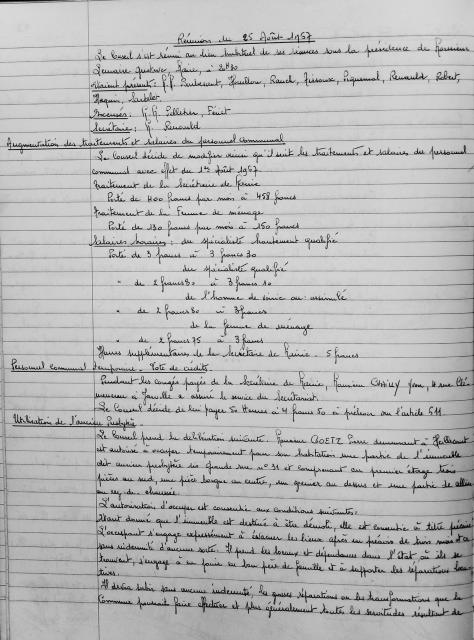 Réunion du 25 Août 1967
Le Conseil s'est réuni au lieu habituel de ses séances sous la présidence de Monsieur
Lemaire Gustave, Maire, à 20H30
étaient présents :
Excusés : M.M. Pelletier,
Secrétaire : M. Renauld
Augmentation des traitements et salaires du personnel communal
Le Conseil décide de modifier ainsi qu'il suit les traitements et salaires du personnel
communal avec effet du 1er Août 1967.
Traitement de la Secrétaire de Mairie
Porté de 400 francs par mois à 458 francs
Traitement de la Femme de ménage
Porté de 130 francs par mois à 150 francs
Salaires horaires : du spécialiste hautement qualifié
Porté de 3 francs à 3 francs 30
du spécialiste qualifié
" de 2 francs 80 à 3 francs 10
de l'homme de service ou assimilé
" de 2 francs 80 à 3 francs
de la femme de ménage
" de 2 francs 75 à 3 francs
Heures supplémentaires de la Secrétaire de Mairie - 5 francs
Personnel communal temporaire - Vote de crédits.
Pendant les congés payés de la Secrétaire de Mairie, Monsieur Jean, 4 rue
à a assuré le service du Secrétariat.
Le Conseil décide de lui payer 50 Heures à 4 francs 50 à prélever sur l'article 611.
Utilisation de l'ancien Presbytère.
Le Conseil prend la délibération suivante : Monsieur GOETZ demeurant à
est autorisé à occuper temporairement pour son habitation une partie de l'immeuble
dit ancien presbytère sis grande rue n° 31 et comprenant au premier étage trois
pièces au sud, une pièce longue au centre, un grenier au dessus et une partie de
au rez de chaussée.
L'autorisation d'occuper est consentie aux conditions suivantes :
Etant donné que l'immeuble est destiné à être démoli, elle est consentie à titre précaire
L'occupant s'engage expressément à évacuer les lieux après un préavis de trois mois et ce
sans indemnité d'aucune sorte. Il prend les locaux et dépendances dans l'état où ils se
trouvent, s'engage à en jouir en bon père de famille et à supporter les réparations loca-
tives.
Il devra subir sans aucune indemnité, les grosses réparations ou les transformations que la
Commune pourrait faire effectuer et plus généralement toutes les servitudes résultant de